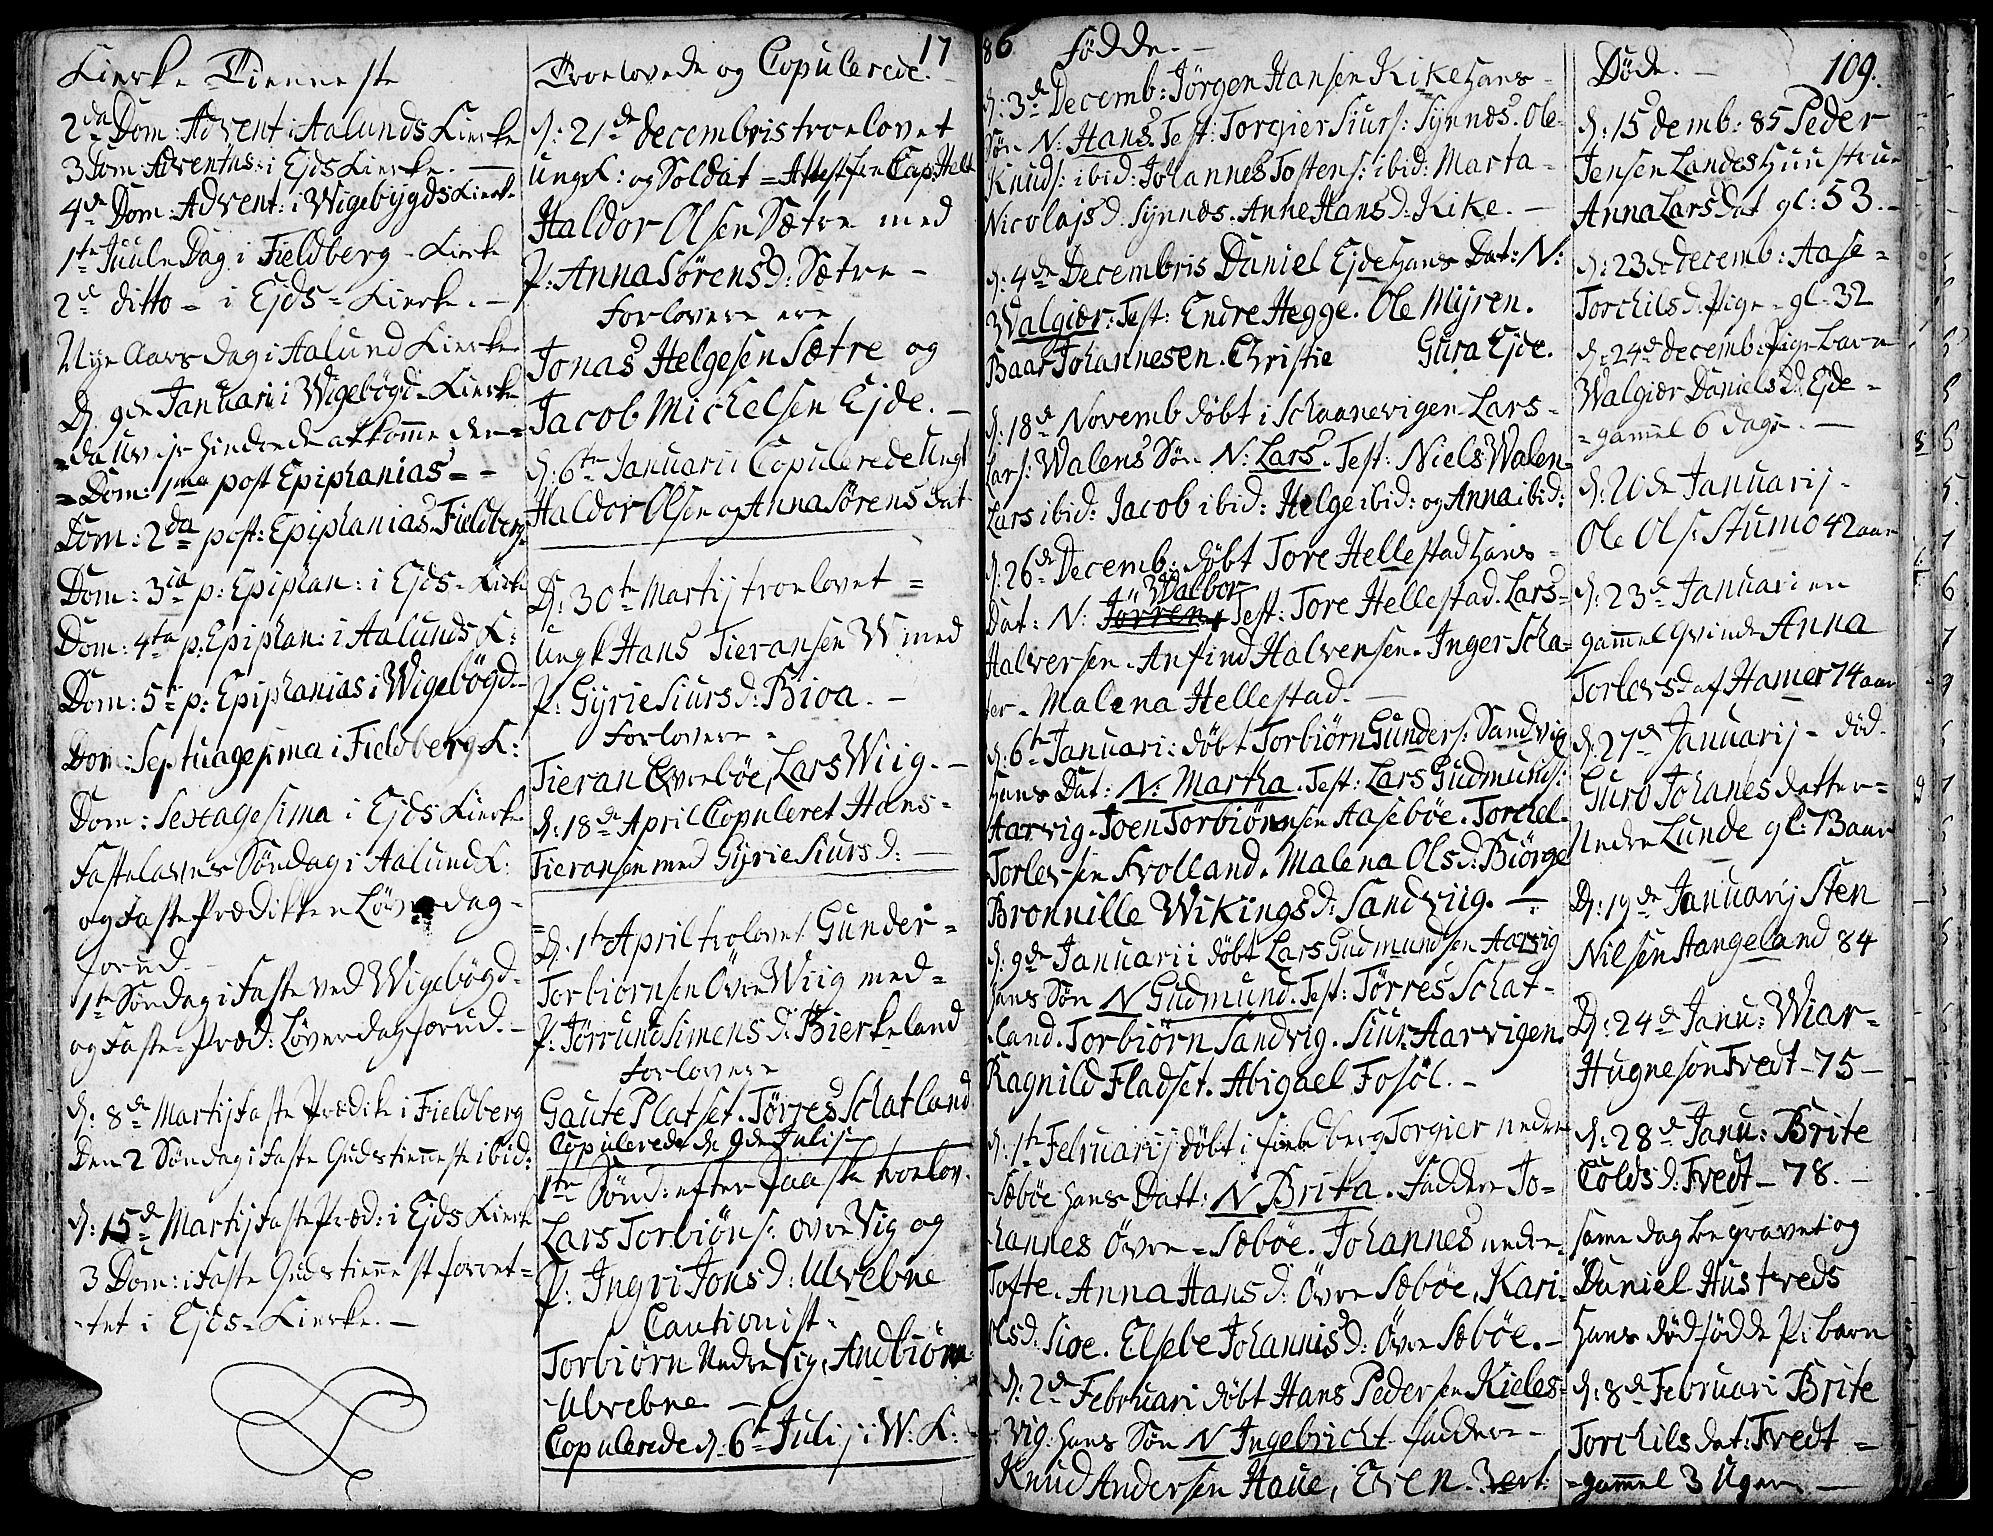 Kierke Tienneste
2da Dom: Advent i Aalunds Kierke
3 Dom: Adventus: i Ejds Kierke. —
4de Dom: Advent: i Wigebÿgds Kierke
1te Juule Dag i Fieldberg - Kierke
2de ditto - i Ejds = Kierke. —
Nye Aars dag i Aalund Kierke
D. 9de Januarii i Wigebögd - Kierke
= da Uvejr hindrede at komme der =
= Dom: 1ma post Epiphanias = -
Dom: 2da post: Epiphanias Fieldberg
Dom: 3tia p: Epiphan: i Ejds = Kierke
Dom: 4ta p: Epiphan: i Aalunds K:
Dom: 5te p: Epiphanias i Wigebögd. -
Dom: Septuagesima i Fieldberg K:
Dom: Sextagesima i Ejds Kierke
Fastelavns Söndag i Aalund K:
og Faste Prædikken Löverdag -
forud. -
1te Söndag i Faste ved Wigebögd -
og Faste = Præd: Löverdag forud. -
d: 8de Martij Faste Prædike i Fieldberg
Den 2 Söndag i Faste Gudstienneste ibid:
d: 15de Martij Faste Præd: i Ejds Kierke
3 Dom: i Faste Gudstienneste forret =
- tet i Ejds = Kierke. —
Troelovede og Copulerede. 17
d: 21de decembris troelovet
Ungk: og Soldat = Attest fra Cap: Helt
Haldor Olsen Sætre med
P: Anna Sörensd: Sætre -
Forlovere ere
Jonas Helgesen Sætre og
Jacob Michelsen Ejde. —
d: 6te Januarii Copulerede Ungk
Haldor Olsen og Anna Sörens Dat
D: 30te Martij troelovet =
Ungk Hans Tieransen W med
P: Gÿrie Siursd: Bioa. -
Forlovere =
Tieran Øvreböe, Lars Wiig. —
d: 18de April Copuleret Hans -
Tieransen med Gÿrie Siursd: —
D: 1te April trolovet Gunder =
Torbiörnsen Övre Wiig med =
P: Jörrund Simens D: Bierkeland
Forlovere
Gaute Platset. Törres Schatland
Copulerede de 9de Julij
1te Sönd: efter Paaske troelov.
Lars Torbiöns: övre Vig og
P: Ingri Jons D: Ulvebne
Cautionist -
Torbiörn Nedre Vig, Andbiörn
- Ulvebne —
Copulerede d: 6te Julij i W: K:
86 Födde. —
d: 3de Decemb: Jörgen Hansen Kike hans -
Sön N: Hans. Test: Torgier Siurs: Sÿnnes. Ole
Knuds: ibid: Johannes Tostens: ibid: Marta -
Nicolajs d. Sÿnnes. Anne Hans d: Kike. —
d: 4de Decembris Daniel Ejde hans Dat: N:
Walgiær: Test: Endre Hegge. Ole Mÿren.
Baar Johannesen. Christie Gura Ejde.
d: 18de Novemb döbt i Schaanevigen Lars -
Lars: Walens Sön N: Lars. Test: Niels Walen
Lars ibid: Jacob ibid: Helge ibid: og Anna ibid:
d: 26de Decemb: döbt Tore Hellestad hans -
Walbor
Dat: N: Jorren Test: Tore Hellestad. Lars -
Halversen. Anfind Halvensen. Inger Scha -
ter. Malena Hellestad. —
d: 6te Januari: döbt Torbiörn Gunders: Sandvig
hans Dat: N: Martha. Test: Lars Gudmunds:
Aarvig. Joen Torbiörnsen Aaseböe. Torchel
Torlevsen Frolland. Malena Olsd: Biörge
Bronnille Wikings D: Sandvig. —
d: 9de Januarii döbt Lars Gudmundsen Aarvig
hans Sön N Gudmund. Test: Törres Schat -
land. Torbiörn Sandvig. Siur Aarvigen.
Ragnild Fladset. Abigael Fosöl. -
d: 1te Februarij döbt i Fieldberg Torgier nedre
Sæböe hans Datt: N Brita. Faddere Jo =
hannes Övre = Sæböe. Johannes nedre
Tofte. Anna Hans d: Övre Sæböe, Kari
Olsd: Sioe. Elsebe Johannis d: Övre Sæböe. -
d: 2de Februari döbt Hans Pedersen Kieles -
- vig: hans Sön N Ingebricht faddere -
Knud Andersen Haue, Even. Bert:
Döde. — 109.
d: 15 demb: 85 Peder
Jensen Landes Huustrue
Anna Lars Dat gl: 53. -
d: 23de decemb: Aase =
Torchils d: Pige - gl: 32
d: 24de decemb: Pige Barn
Walgiær Daniels D: Ejde -
= gammel 6 dage. —
d: 20de Januarij -
Ole Ols: Stumo 42 aar
d: 23de Januari en
gammel Qvinde Anna
Torlevsd af Hamer 74 aar
d: 27de Januarij - död.
Guro Johanes datter =
Nedre Lunde gl: 73 aar
D: 19de Januarij Sten
Nilsen Stangeland 84
D: 24de Janu: Wiar -
Hugneson Tvedt - 75 -
d: 28de Janu: Brite
Colds d: Tvedt - 78. -
same dag begravet og
Daniel Hustveds
hans dödfödde P: barn
d: 8de Februari Brite
Torchils dat: Tvedt =
= gammel 3 Uger. —